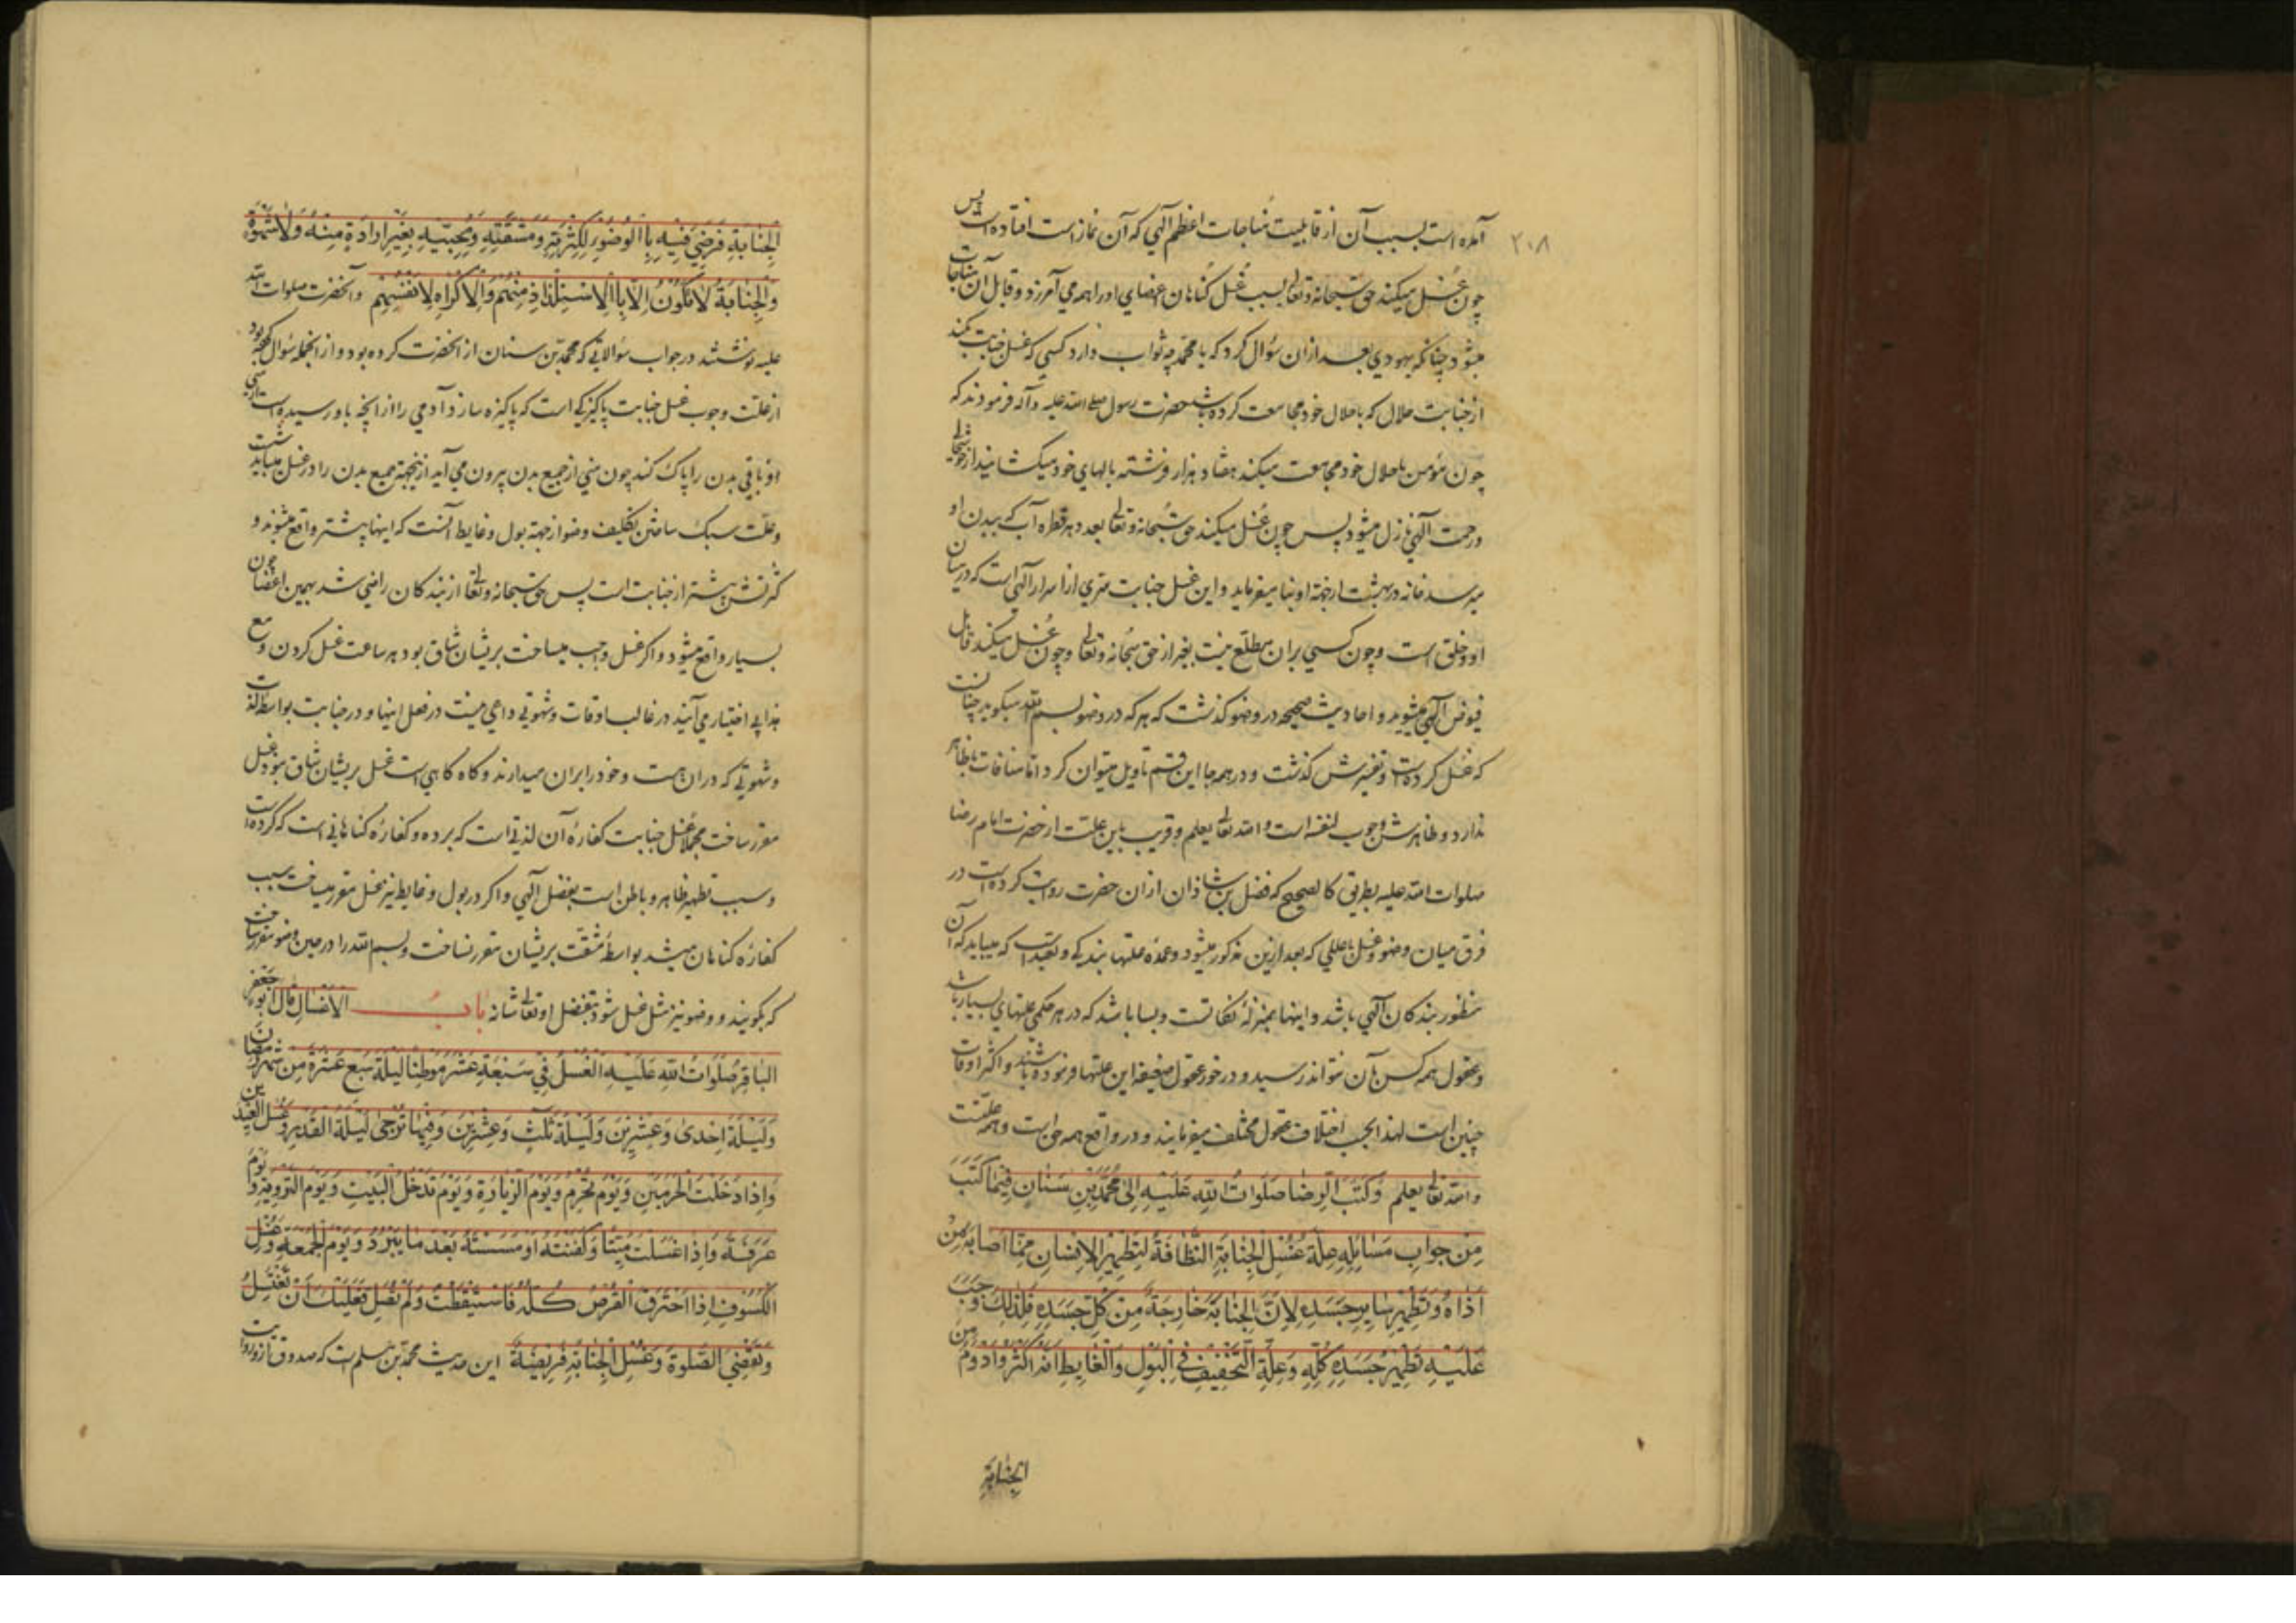 ۲۰۸
آمده است بسبب آن از قابلیت مناجات اعظم آلهی که آن نماز است افتاده است پس
چون غسل میکند حق سبحانه و تعالی بسبب غسل کناهان اعضای او را همه می آمرزد و قابل آن مناجات
میشود چنانکه یهودی بعد از ان سؤال کرد که یا محمد چه ثواب دارد کسی که غسل جنابت کند
از جنابت حلال که با حلال خود مجامعت کرده باشد حضرت رسول صلی الله علیه و آله فرمودند که
چون مؤمن با حلال خود مجامعت میکند هفتاد هزار فرشته بالهای خود میکشانید از خوشحالی
و رحمت آلهی نازل میشود پس چون غسل میکند حق سبحانه و تعالی بعدد هر قطره آب که ببدن او
میرسد خانه در بهشت از جهة او بنا میفرماید و این غسل جنابت سری از اسرار آلهی است که در میان
او و خلق است و چون کسی بر ان مطلع نیست بغیر از حق سبحانه و تعالی و چون غسل میکند قابل
فیوض آلهی میشوید و احادیث صحیحه در وضو کذشت که هر که در وضو بسم الله میکوید چنانست
که غسل کرده است و تفسیرش کذشت و در همه جا این قسم تاویل میتوان کرد اما منافات با ظاهر
ندارد و ظاهرش وجوب لنفسه است و الله تعالی یعلم و قریب باین علت از حضرت امام رضا
صلوات الله علیه بطریق کالصحیح که فضل بن شاذان از ان حضرت روایت کرده است در
فرق میان وضو و غسل با عللی که بعد ازین مذکور میشود و عمده علتها بندکی و تعبد است که میباید که آن
منظور بندکان آلهی باشد و اینها بمنزلهٔ نکاتست و بسا باشد که در هر حکمی علتهای بسیار باشد
و عقول همه کس بآن نتواند رسید و در خور عقول ضعیفه این علتها فرموده باشند و اکثر اوقات
چنین است لهذا بحسب اختلاف عقول مختلف میفرمایند و در واقع همه حق است و همه علتست
و الله تعالی یعلم وَكَتَبَ الرِّضَا صَلَوَاتُ اللهِ عَلَيْهِ اِلیٰ مُحَمَّدِ بْنِ سَنٰانٍ فِيمٰا كَتَبَ
مِنْ جَوابِ مَسٰائِلِهِ عِلَّةُ غُسْلِ الْجِنٰابَةِ النَّظٰافَةُ لِتَطْهِيرِ الْاِنْسٰانِ مِمّٰا اَصٰابَهُ مِنْ
اَذٰاهُ وَتَطْهِيرِ سٰايِرِ جَسَدِهِ لِاَنَّ الْجِنٰابَةَ خٰارِجَةٌ مِنْ كُلِّ جَسَدِهِ فَلِذٰلِكَ وَجَبَ
عَلَيْهِ تَطْهِيرُ جَسَدِهِ كُلِّهِ وَعِلَّةُ التَّخْفِيفِ فِي الْبَوْلِ وَالْغٰايِطِ اَنَّهُ اَكْثَرُ وَادْوَمُ مِنَ
الْجِنٰابَةِ
الْجِنٰابَةِ فَرَضِيَ فِيهِ بِاالْوُضُوءِ لِكَثْرَتِهِ وَمَشَقَّتِهِ وَمَجِيئِهِ بِغَيْرِ اِرٰادَةٍ مِنْهُ وَلٰا شَهْوَةٍ
وَالْجِنٰابَةُ لٰا تَكُونُ اِلّٰا بِاالْاِسْتِلْذٰاذِ مِنْهُمْ وَالْاِكْرٰاهِ لِاَنْفُسِهِمْ و آنحضرت صلوات الله
علیه نوشتند در جواب سؤالاتی که محمد بن سنان از آنحضرت کرده بود و از آنجمله سؤال کرده بود
از علت وجوب غسل جنابت پاکیزکی است که پاکیزه سازد آدمی را از انچه باو رسیده است از منی
او و باقی بدن را پاک کند چون منی از جمیع بدن بیرون می آید از ینجهة جمیع بدن را در غسل میباید شست
و علت سبک ساختن تکلیف وضو از جهة بول و غایط آنست که اینها بیشتر واقع میشوند و
کثرتش بیشتر از جنابت است پس حق سبحانه و تعالی از بندکان راضی شد بهمین اعضا چون
بسیار واقع میشود و اکر غسل واجب میساخت بریشان شاق بود هر ساعت غسل کردن و مع
هذا بی اختیار می آیند در غالب اوقات و شهوتی داعی نیست در فعل اینها و در جنابت بواسطه لذت
و شهوتی که در ان هست و خود را بر ان میدارند و کاه کاهی است غسل بریشان شاق نبود غسل
مقرر ساخت مجملا غسل جنابت کفارهٔ آن لذتی است که برده و کفارهٔ کناهانی است که کرده است
و سبب تطهیر ظاهر و باطن است بفضل آلهی و اکر در بول و غایط نیز غسل مقرر میساخت سبب
کفارهٔ کناهان میشد بواسطهٔ مشقت بریشان مقرر نساخت و بسم الله را در حین وضو مقرر ساخت
که بکویند و وضو نیز مثل غسل شود بتفضل او تعالی شانه بابُ الْاَغْسٰالِ قٰالَ اَبُو جَعْفَرٍ
الْبٰاقِرُ صَلَوٰاتُ اللهِ عَلَيْهِ الْغُسْلُ فِي سَبْعَةِ عَشَرَ مَوْطِنًا لَيْلَةَ سَبْعَ عَشَرَةَ مِنْ شَهْرِ رَمَضٰانَ
وَلَيْلَةَ اِحْدیٰ وَعِشْرِينَ وَلَيْلَةَ ثَلٰثٍ وَعِشْرِينَ وَفِيهٰا تُرْجیٰ لَيْلَةُ الْقَدْرِ وَغُسْلِ الْعِيدَيْنِ
وَاِذٰا دَخَلْتَ الْحَرَمَيْنِ وَيَوْمَ تُحْرِمُ وَيَوْمَ الزِّيٰارَةِ وَيَوْمَ تَدْخُلُ الْبَيْتَ وَيَوْمَ التَّرْوِيَةِ وَيَوْمَ
عَرَفَةَ وَاِذٰا غَسَّلْتَ مَيِّتًا وَكَفَّنْتَهُ اَوْ مَسَسْتَهُ بَعْدَ مٰا يَبْرُدُ وَيَوْمَ الْجُمُعَةِ وَغُسْلِ
الْكُسُوفِ اِذٰا احْتَرَقَ الْقُرْصُ كُلُّهُ فَاسْتَيْقَظْتَ وَلَمْ تُصَلِّ فَعَلَيْكَ اَنْ تَغْتَسِلَ
وَتَقْضِيَ الصَّلٰوةَ وَغُسْلُ الْجِنٰابَةِ فَرِيضَةٌ این حدیث محمد بن مسلم است که صدوق از و روایت